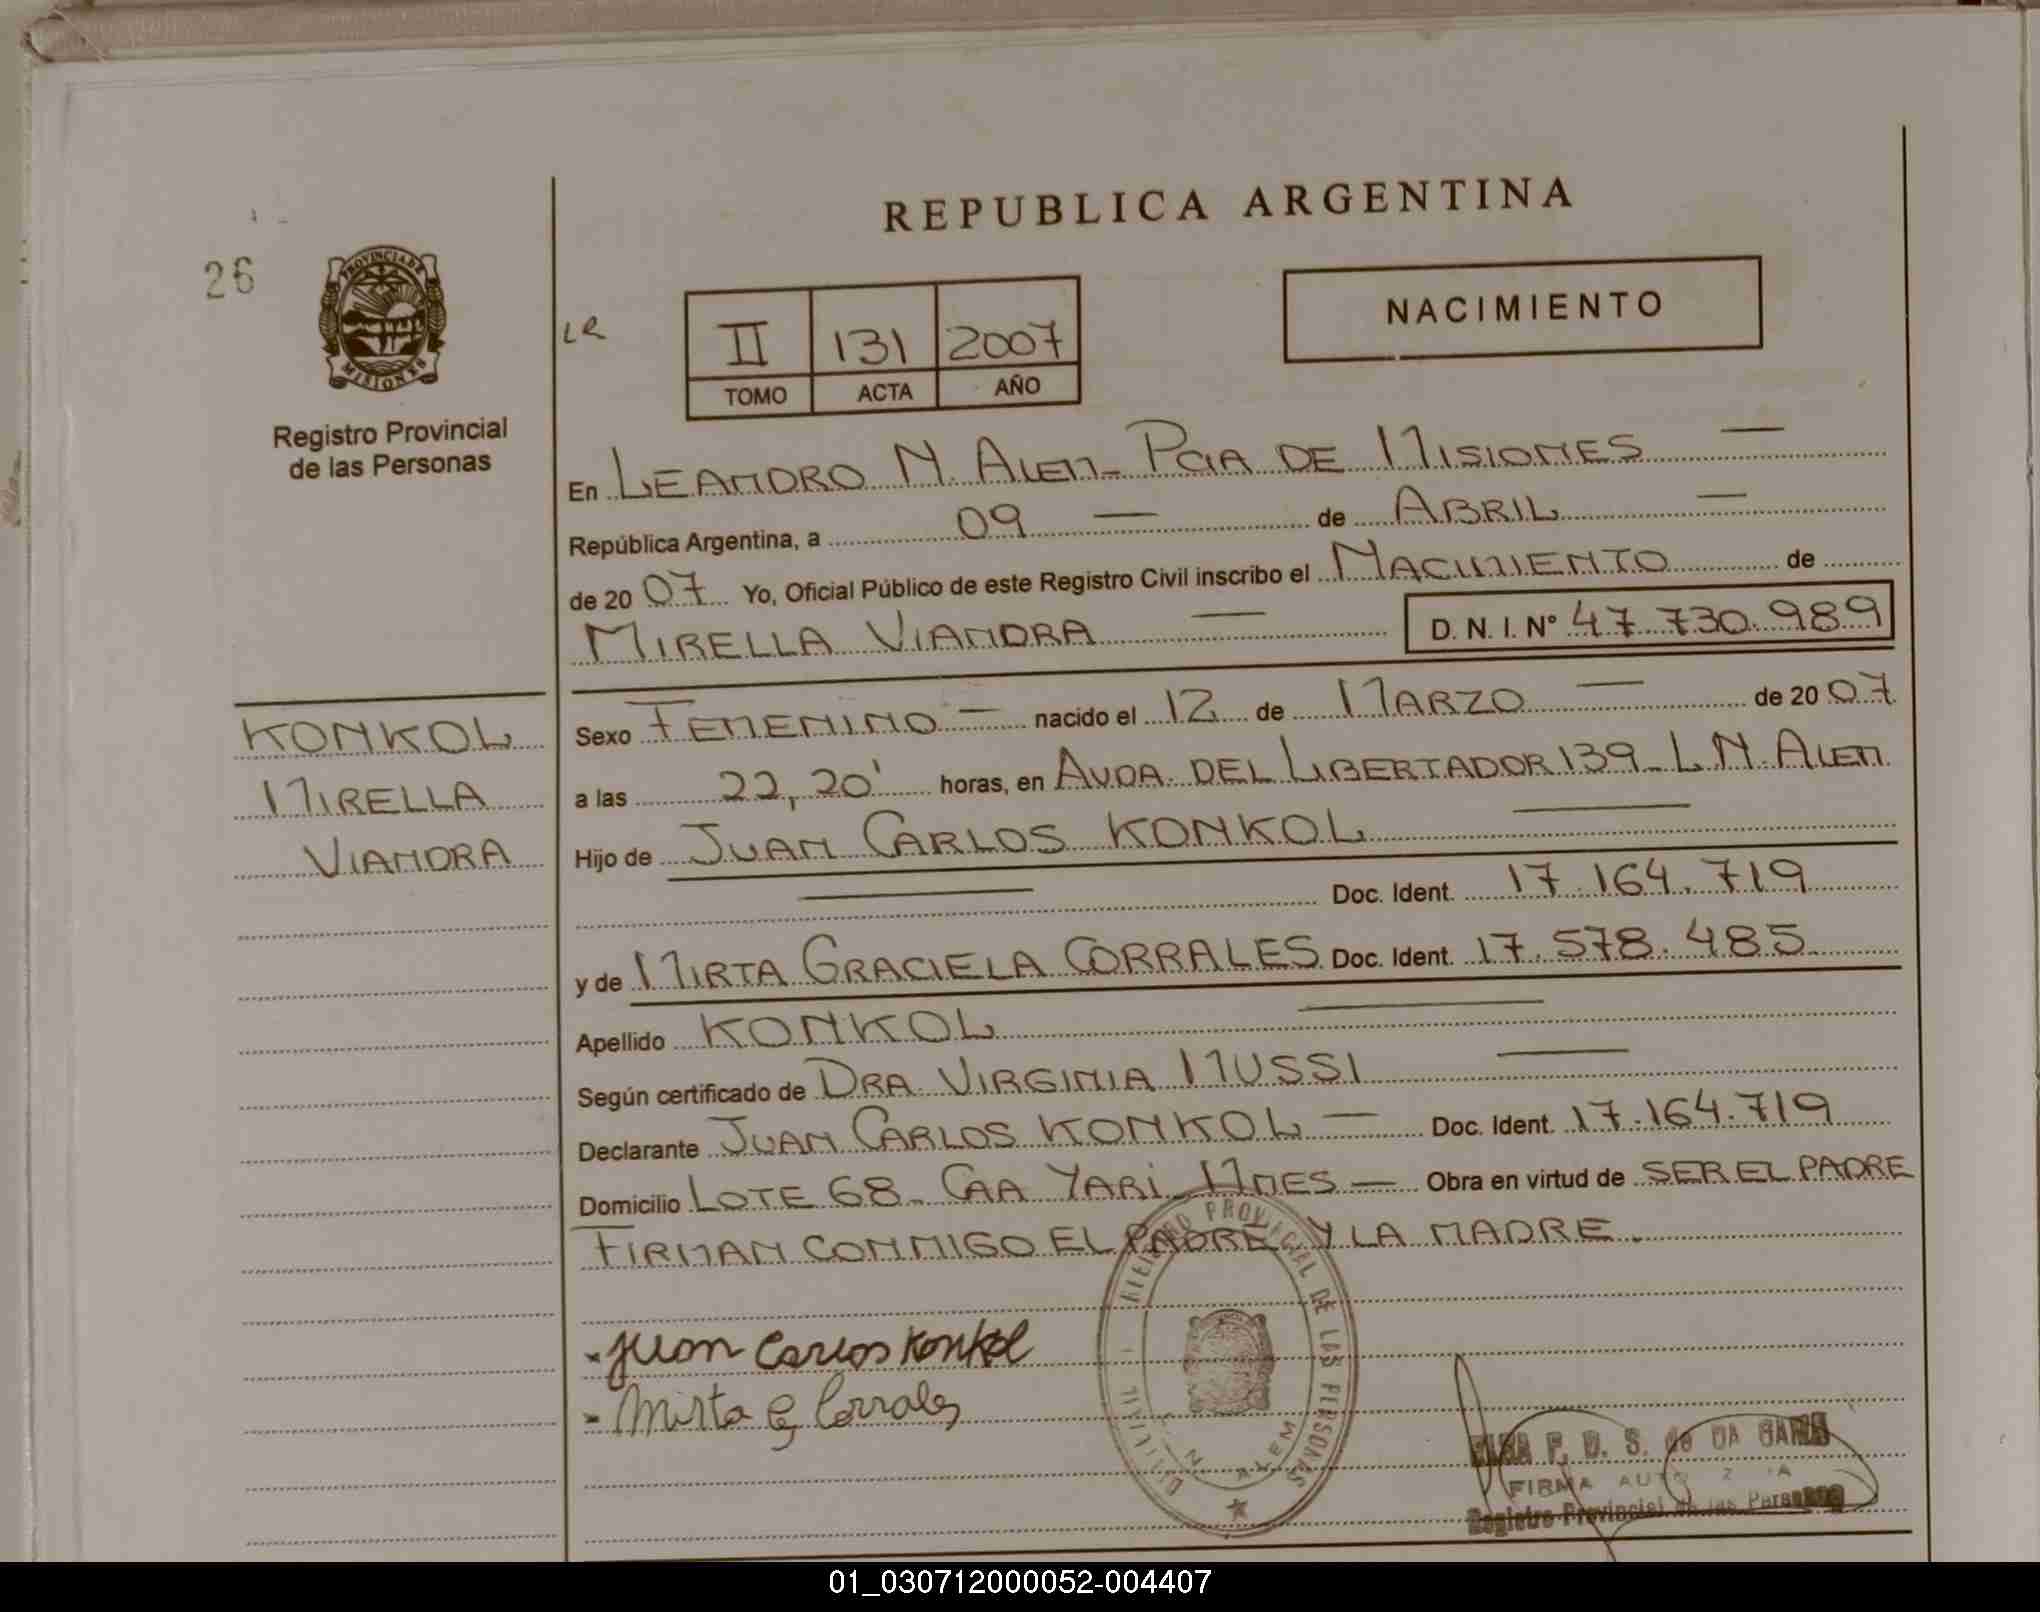 REPUBLICA ARGENTINA
26
PROVINCIA DE
MISIONES
Registro Provincial
de las Personas
LR
II 131 2007
TOMO ACTA AÑO
NACIMIENTO
En LEANDRO N. ALEM - PCIA DE MISIONES —
República Argentina, a 09 — de ABRIL —
de 20 07 Yo, Oficial Público de este Registro Civil inscribo el NACIMIENTO de
MIRELLA VIANDRA — D. N. I. N° 47.730.989
KONKOL
MIRELLA
VIANDRA
Sexo FEMENINO — nacido el 12 de MARZO — de 20 07
a las 22,20' horas, en AVDA. DEL LIBERTADOR 139 - L. N. ALEM
Hijo de JUAN CARLOS KONKOL —
— Doc. Ident. 17.164.719
y de MIRTA GRACIELA CORRALES Doc. Ident. 17.578.485
Apellido KONKOL —
Según certificado de DRA. VIRGINIA MUSSI —
Declarante JUAN CARLOS KONKOL — Doc. Ident. 17.164.719
Domicilio LOTE 68 - CAA YARI - MNES — Obra en virtud de SER EL PADRE
FIRMAN CONMIGO EL PADRE Y LA MADRE.
- Juan Carlos Konkol
- Mirta G Corrales
PROVINCIAL DE LAS PERSONAS
N. ALEM
F. D. S. de DA GAMA
FIRMA
Registro Provincial de las Personas
01_030712000052-004407